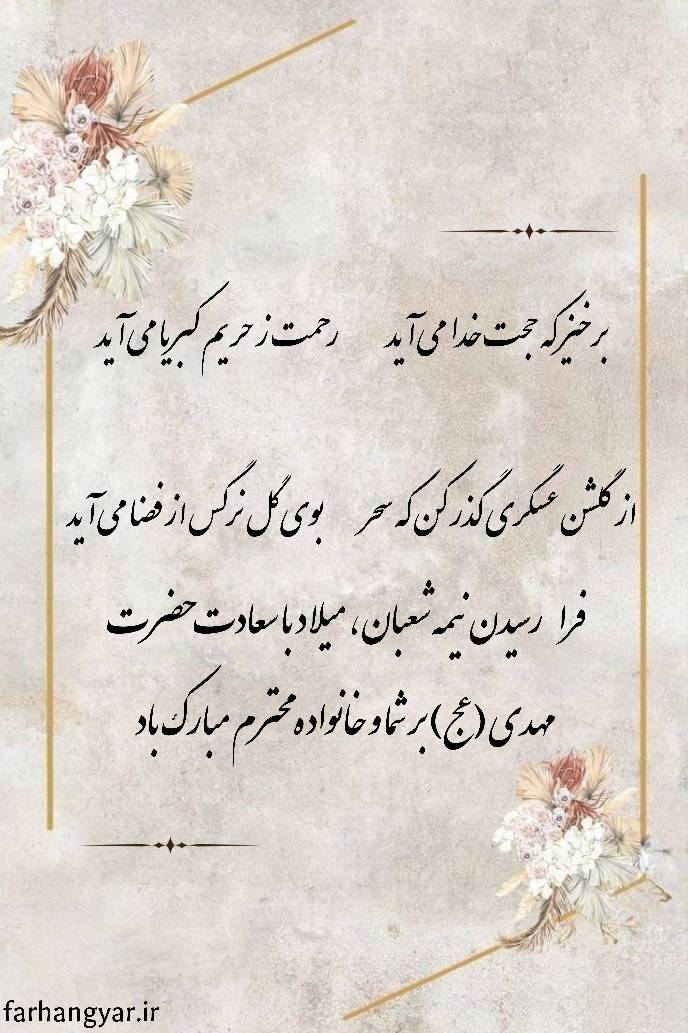 برخیز که حجت خدا می آید رحمت ز حریم کبریا می آید
از گلشن عسکری گذر کن که سحر بوی گل نرگس از فضا می آید
فرا رسیدن نیمه شعبان، میلاد با سعادت حضرت
مهدی (عج) بر شما و خانواده محترم مبارک باد
farhangyar.ir